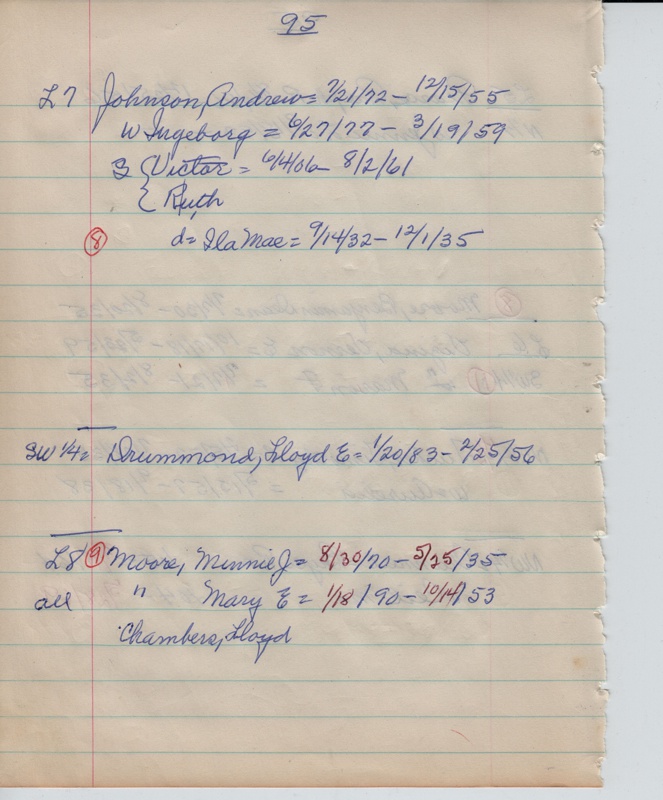 95
L7 Johnson, Andrew = 7/21/72 - 12/15/55
W Ingeborg = 6/27/77 - 3/19/59
S { Victor = 6/4/06 - 8/2/61
{ Ruth
(8) d = Ila Mae = 9/14/32 - 12/1/35
SW 1/4 = Drummond, Lloyd E = 1/20/83 - 2/25/56
L8 (9) Moore, Minnie J = 8/30/70 - 5/25/35
all " Mary E = 1/18/90 - 10/14/53
Chambers, Lloyd